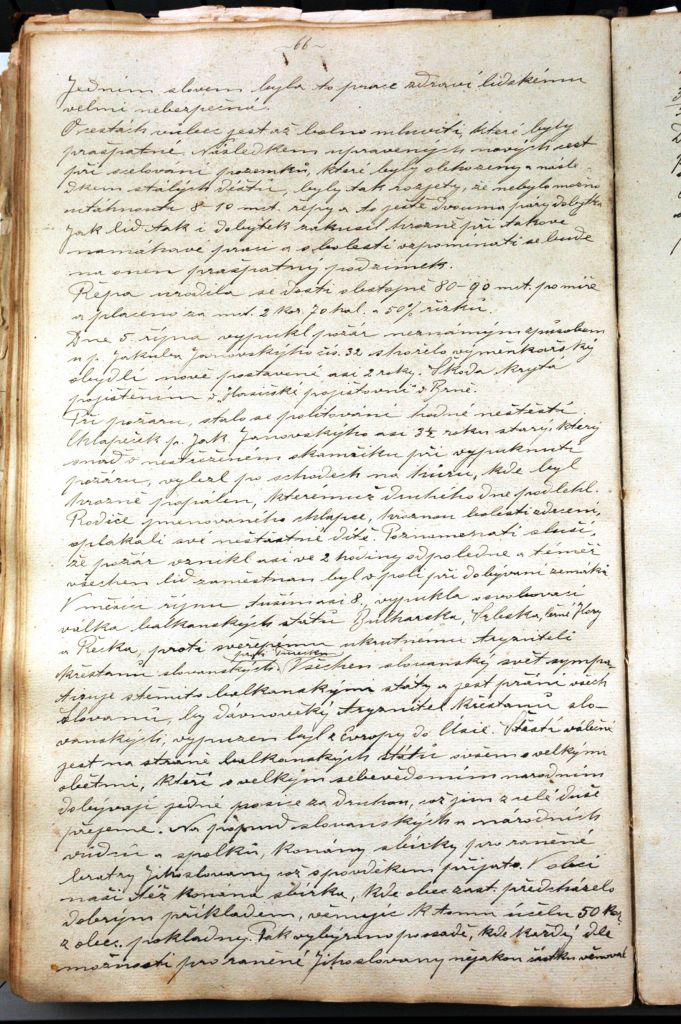 - 66 -
Jedním slovem byla to práce zdraví lidskému
velmi nebezpečná.
O cestách vůbec jest až bolno mluviti, které byly
prašpatné. Následkem upravených nových cest
při scelování pozemků, které byly obhozeny a násle-
dkem stálých dešťů, byly tak rozjety, že nebylo možno
utáhnouti 8-10 mct. řepy a to ještě dvouma páry dobytka
Jak lid tak i dobytek zakusil hrozně při takové
namáhavé práci a s bolestí vzpomínati se bude
na onen prašpatný podzimek.
Řepa urodila se dosti obstojně 80-90 mct. po míře
a placeno za mct. 2 kor. 70 hal. a 50% řízků.
Dne 5. října vypukl požár neznámým způsobem
u p. Jakuba Janovského čís. 32 shořelo výměnkářský
obydlí nové postavené asi 2 roky. Škoda krytá
pojištěním v "Hasičské pojišťovni" v Brně.
Při požáru, stalo se politování hodné neštěstí
Chlapeček p. Jak. Janovského asi 3½ roku starý, který
snad v nestřeženém okamžiku při vypuknutí
požáru, vylezl po schodech na hůru, kde byl
hrozně popálen, kteremuž druhého dne podlehl.
Rodiče jmenovaného chlapce, hroznou bolestí zdrceni,
oplakali své nešťastné dítě. Poznamenati sluší,
že požár vznikl asi ve 2 hodiny odpoledne a téměř
všechen lid zaměstnán byl v poli při dobývání zemáků
V měsíci říjnu tuším asi 8. vypukla osvobovací
válka balkánských států Bulharska, Srbska, Černé Hory
a Řecka, proti sveřepému ukrutnému tryzniteli
proti Turecku
křesťanů slovanských. Všechen slovanský svět sympa-
tizuje s těmito balkánskými státy a jest přání všech
Slovanů, by dávnověký tryznitel křesťanů slo-
vanských, vypuzen byl z Evropy do Asie. Štěstí válečné
jest na straně balkánských států ovšem s velkými
oběťmi, kteří s velkým sebevědomím národním
dobývají jedné posice za druhou, což jim z celé duše
přejeme. Na popud slovanských a národních
vůdců a spolků, konány sbírky pro raněné
bratry Jihoslovany což s povděkem přijato. V obci
naší též konána sbírka, kde obec. zast. předcházelo
dobrým příkladem, věnujíc k tomu účelu 50 kor.
z obec. pokladny. Pak vybýráno po osadě, kde každý dle
možnosti pro raněné Jihoslovany nějakou částku věnoval